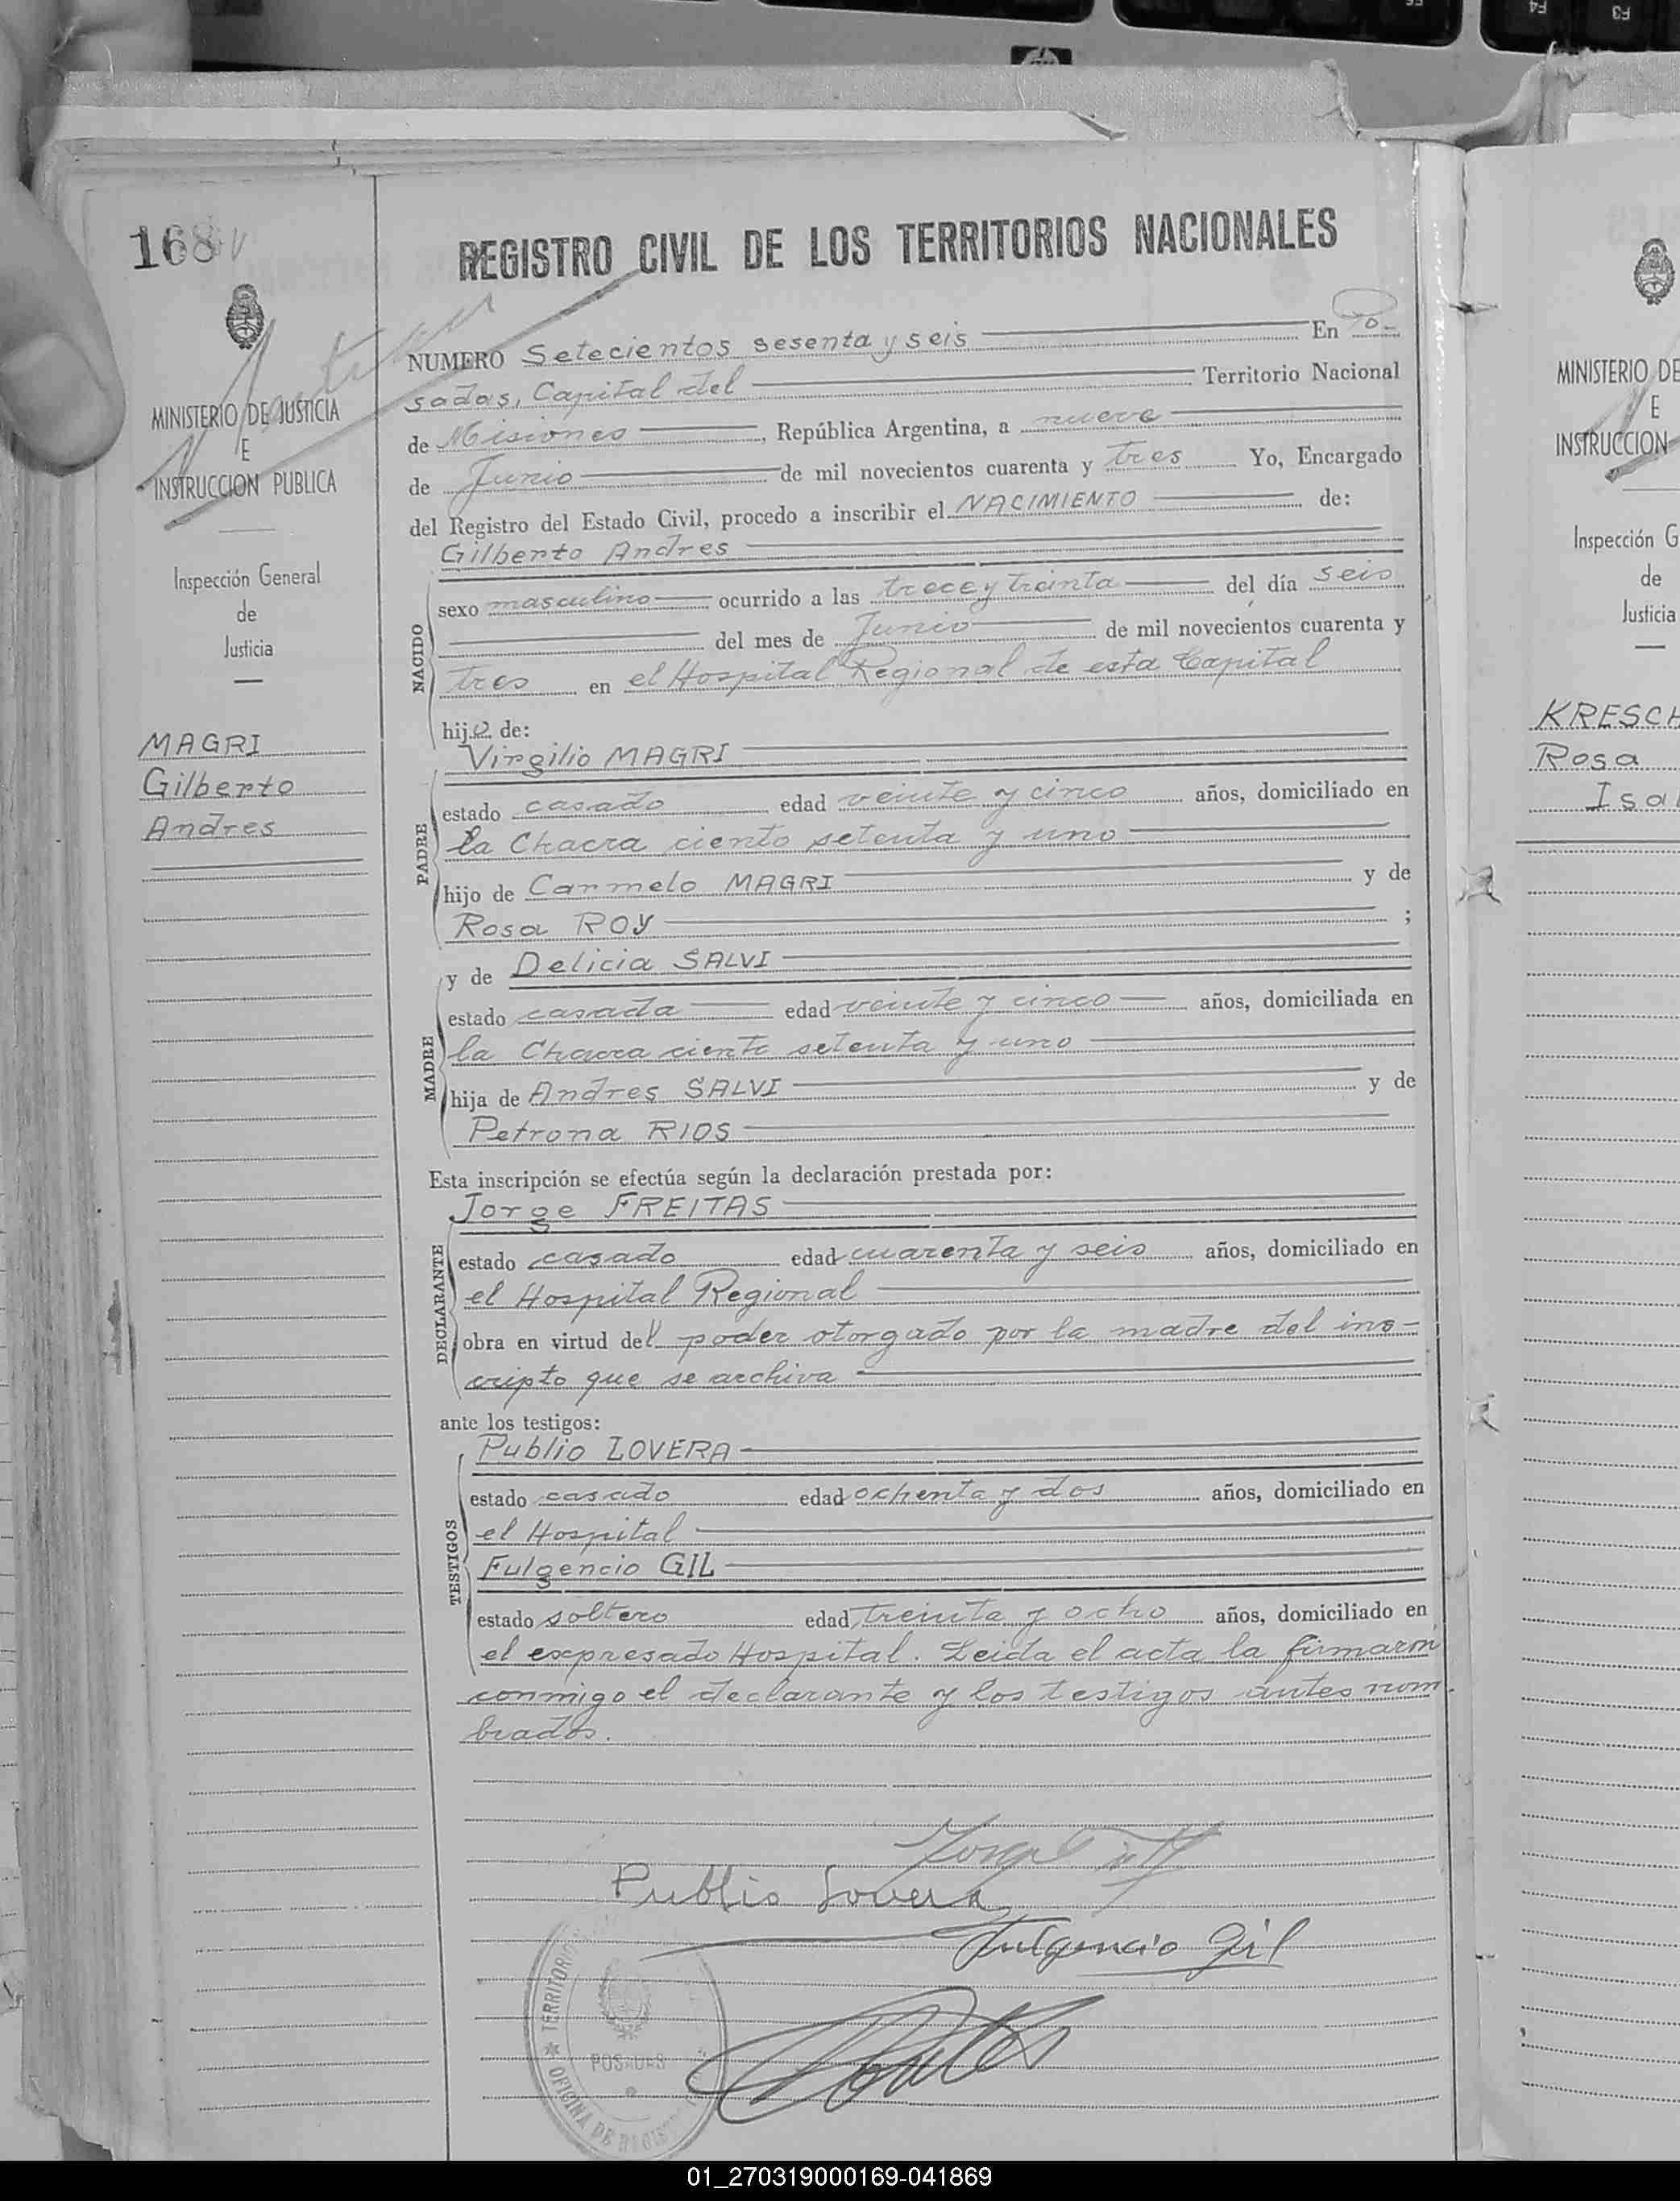 168
REGISTRO CIVIL DE LOS TERRITORIOS NACIONALES
MINISTERIO DE JUSTICIA
E
INSTRUCCION PUBLICA
Inspección General
de
Justicia
MAGRI
Gilberto
Andres
NUMERO Setecientos sesenta y seis En Po-
sadas, Capital del Territorio Nacional
de Misiones, República Argentina, a nueve
de Junio de mil novecientos cuarenta y tres Yo, Encargado
del Registro del Estado Civil, procedo a inscribir el NACIMIENTO de:
NACIDO
Gilberto Andres
sexo masculino ocurrido a las trece y treinta del día seis
del mes de Junio de mil novecientos cuarenta y
tres en el Hospital Regional de esta Capital
hijo de:
PADRE
Virgilio MAGRI
estado casado edad veinte y cinco años, domiciliado en
la Chacra ciento setenta y uno
hijo de Carmelo MAGRI y de
Rosa ROY ;
MADRE
y de Delicia SALVI
estado casada edad veinte y cinco años, domiciliada en
la Chacra ciento setenta y uno
hija de Andres SALVI y de
Petrona RIOS
Esta inscripción se efectúa según la declaración prestada por:
DECLARANTE
Jorge FREITAS
estado casado edad cuarenta y seis años, domiciliado en
el Hospital Regional
obra en virtud del poder otorgado por la madre del ins-
cripto que se archiva
ante los testigos:
TESTIGOS
Publio LOVERA
estado casado edad ochenta y dos años, domiciliado en
el Hospital
Fulgencio GIL
estado soltero edad treinta y ocho años, domiciliado en
el expresado Hospital. Leida el acta la firmaron
conmigo el declarante y los testigos antes nom-
brados.
Publio Lovera
Fulgencio Gil
TERRITORIO
POSADAS
OFICINA DE REGIST
MINISTERIO DE
E
INSTRUCCION
Inspección G
de
Justicia
KRESCH
Rosa
Isa
01_270319000169-041869